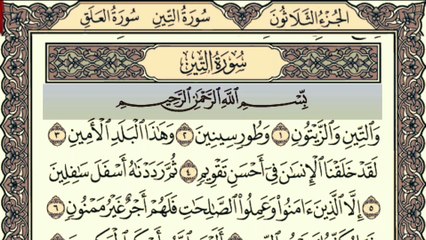 الجُزْءُ الثَّلَاثُونَ سُورَةُ التِّينِ سُورَةُ العَلَقِ
سُورَةُ التِّينِ
بِسْمِ ٱللَّهِ ٱلرَّحْمَٰنِ ٱلرَّحِيمِ
وَٱلتِّينِ وَٱلزَّيْتُونِ ١ وَطُورِ سِينِينَ ٢ وَهَٰذَا ٱلْبَلَدِ ٱلْأَمِينِ ٣
لَقَدْ خَلَقْنَا ٱلْإِنسَٰنَ فِىٓ أَحْسَنِ تَقْوِيمٍ ٤ ثُمَّ رَدَدْنَٰهُ أَسْفَلَ سَٰفِلِينَ
٥ إِلَّا ٱلَّذِينَ ءَامَنُوا۟ وَعَمِلُوا۟ ٱلصَّٰلِحَٰتِ فَلَهُمْ أَجْرٌ غَيْرُ مَمْنُونٍ ٦